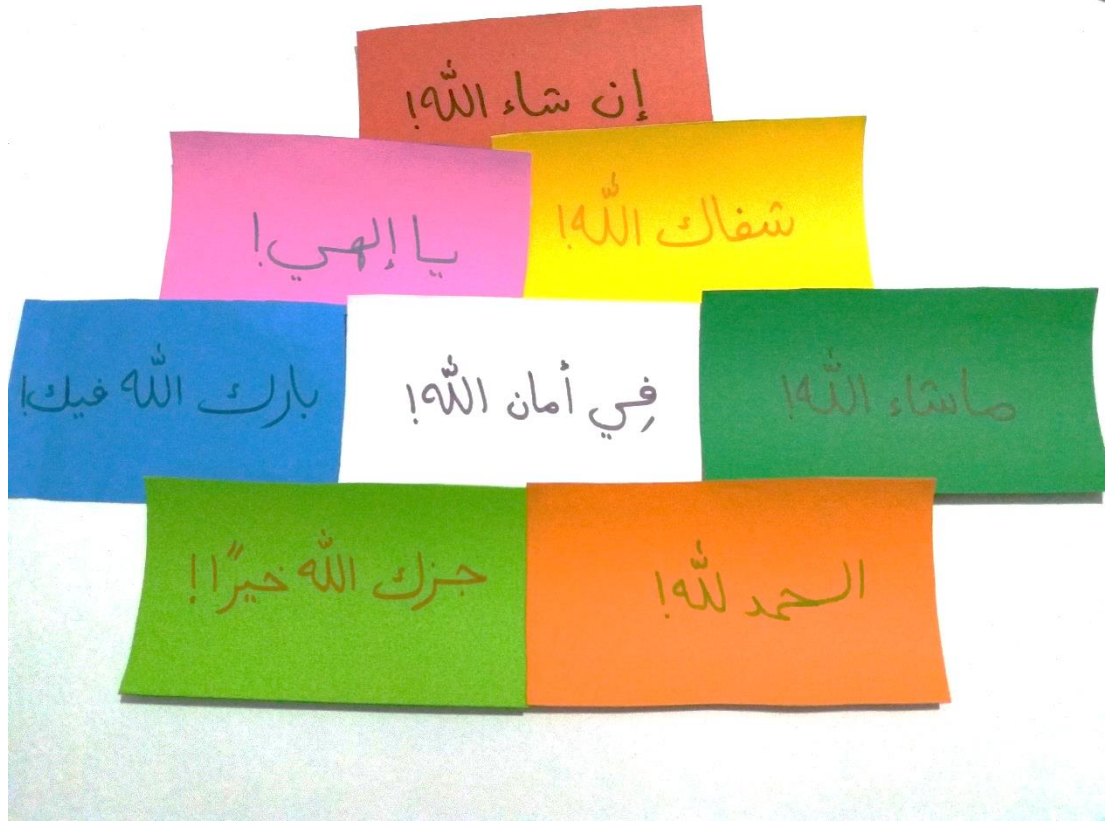 إن شاء الله!
شفاك الله!
يا إلهي!
ماشاء الله!
فِي أمان الله!
بارك الله فيك!
الحمد لله!
جزك الله خيرًا!